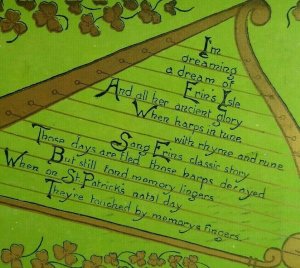 I'm
dreaming
a dream of
Erin's Isle
And all her ancient glory
When harps in tune
with rhyme and rune
Sang Erin's classic story
Those days are fled, those harps decayed
But still fond memory lingers
When on St. Patrick's natal day
They're touched by memory's fingers.